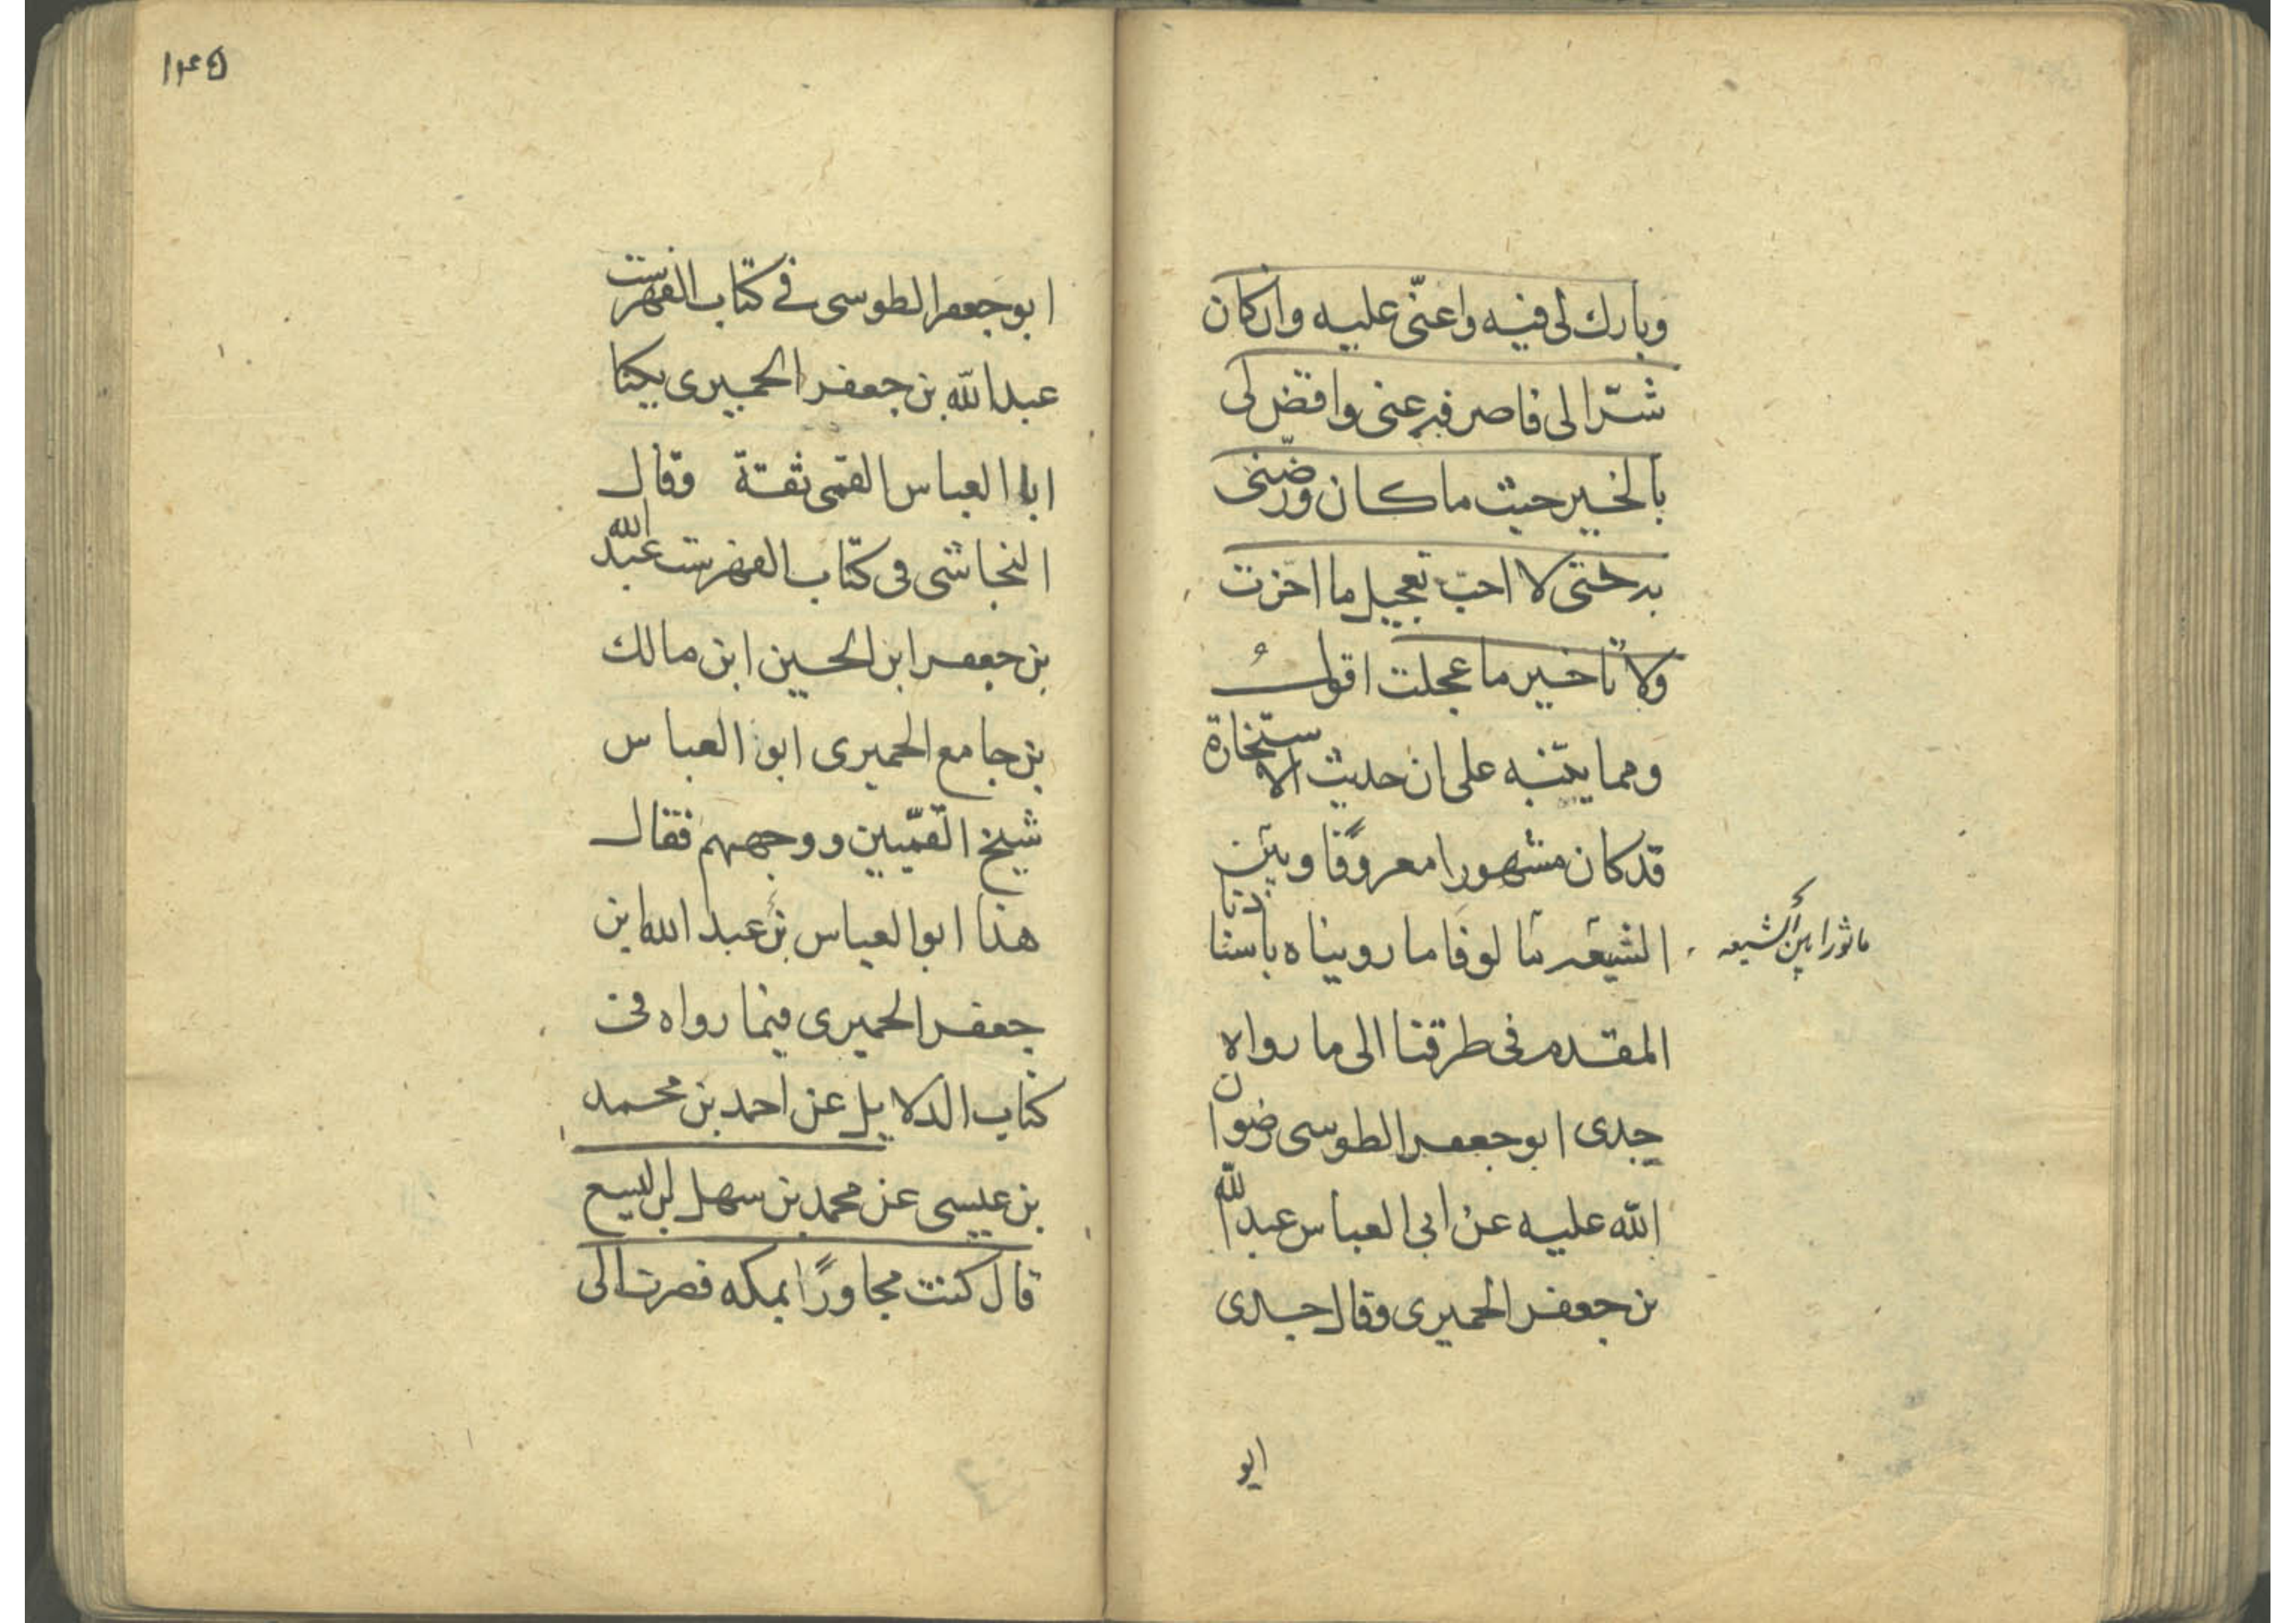 وبارك لى فيه واعنّى عليه وان كان
شرّا لى فاصرفه عنى واقض لى
بالخير حيث ما كان ورضّنى
به حتى لا احبّ تعجيل ما اخرت
ولا تاخير ما عجلت اقول
ومما ينبّه على ان حديث الاستخارة
قد كان مشهورا معروفًا وبين
الشيعه مالوفا ما رويناه باسنادنا
ماثورا بين الشيعه
المقدم فى طرقنا الى ما رواه
جدى ابو جعفر الطوسى رضوان
الله عليه عن ابى العباس عبد الله
بن جعفر الحميرى وقال جدى
ابو
١٤٥
ابو جعفر الطوسى فى كتاب الفهرست
عبد الله بن جعفر الحميرى يكنا
ابا العباس القمى ثقة وقال
النجاشى فى كتاب الفهرست عبد الله
بن جعفر ابن الحسين ابن مالك
بن جامع الحميرى ابو العباس
شيخ القمّيين ووجههم فقال
هذا ابو العباس بن عبد الله ابن
جعفر الحميرى فيما رواه فى
كتاب الدلايل عن احمد بن محمد
بن عيسى عن محمد بن سهل بن ليسع
قال كنت مجاورًا بمكه فصرت الى